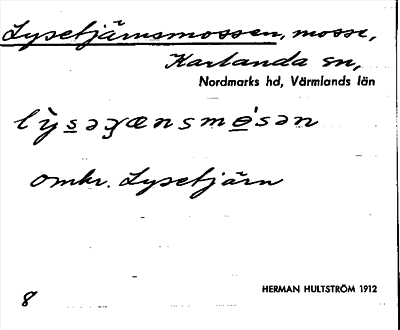 Lysetjärnsmossen, mosse,
Karlanda sn,
Nordmarks hd, Värmlands län
omkr. Lysetjärn
HERMAN HULTSTRÖM 1912
8